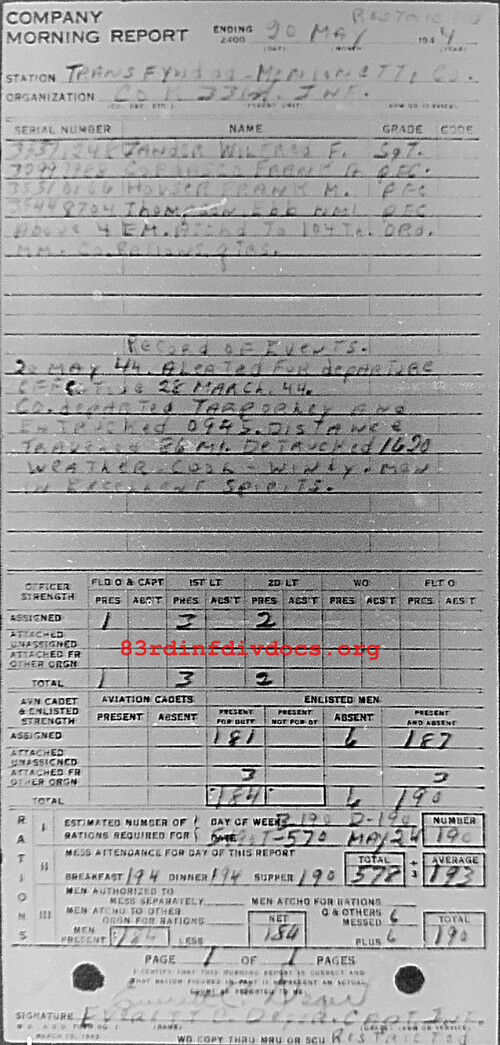 Restricted
COMPANY
MORNING REPORT
ENDING 2400 20 MAY 1944
(DAY) (MONTH) (YEAR)
STATION TRANSFYNDDD - MERIONETH, Co.
ORGANIZATION Co K 331st. INF.
(CO, DET, ETC.) (PARENT UNIT) (ARM OR SERVICE)
SERIAL NUMBER NAME GRADE CODE
WILFRED F. SgT.
FRANK A PFC.
35310166 HOUSER FRANK M. PFC
35448704 Thompson, PFC
Above 4 EM. Atchd To 104Th. ORD.
MM. Co. Rations. qtrs.
Record of Events.
20 MAY 44. ALERTED FOR departure
EFFECTIVE 28 MARCH, 44.
CO. departed TARPORLEY AND
ENTRUCKED 0945. DISTANCE
TRAVELED 86 MI. DETRUCKED 1620
WEATHER - COOL - WINDY - MEN
IN EXCELLENT SPIRITS.
OFFICER STRENGTH FLD O & CAPT 1ST LT 2D LT WO FLT O
PRES ABS'T PRES ABS'T PRES ABS'T PRES ABS'T PRES ABS'T
ASSIGNED 1 3 2
ATTACHED UNASSIGNED
ATTACHED FR OTHER ORGN
83rdinfdivdocs.org
TOTAL 1 3 2
AVN CADET & ENLISTED STRENGTH AVIATION CADETS ENLISTED MEN
PRESENT ABSENT PRESENT FOR DUTY PRESENT NOT FOR DY ABSENT PRESENT AND ABSENT
ASSIGNED 181 6 187
ATTACHED UNASSIGNED
ATTACHED FR OTHER ORGN 3 3
TOTAL 184 6 190
RATIONS
I ESTIMATED NUMBER OF RATIONS REQUIRED FOR DAY OF WEEK B-190 D-190 NUMBER
DATE 570 MAY 24 190
II MESS ATTENDANCE FOR DAY OF THIS REPORT TOTAL ÷ 3 AVERAGE
BREAKFAST 194 DINNER 194 SUPPER 190 578 193
III MEN AUTHORIZED TO MESS SEPARATELY MEN ATCHD FOR RATIONS
MEN ATCHD TO OTHER ORGN FOR RATIONS NET O & OTHERS MESSED 6 TOTAL
MEN PRESENT 184 LESS 184 PLUS 6 190
PAGE 1 OF 1 PAGES
I CERTIFY THAT THIS MORNING REPORT IS CORRECT AND
THAT RATION FIGURES IN PART II REPRESENT AN ACTUAL
COUNT OR REPORTED TO ME.
SIGNATURE EVERETT C. CAPT INF.
W.D. A.G.O. FORM NO. 1 (NAME) (GRADE) (ARM OR SERVICE)
WD COPY THRU MRU OR SCU Restricted